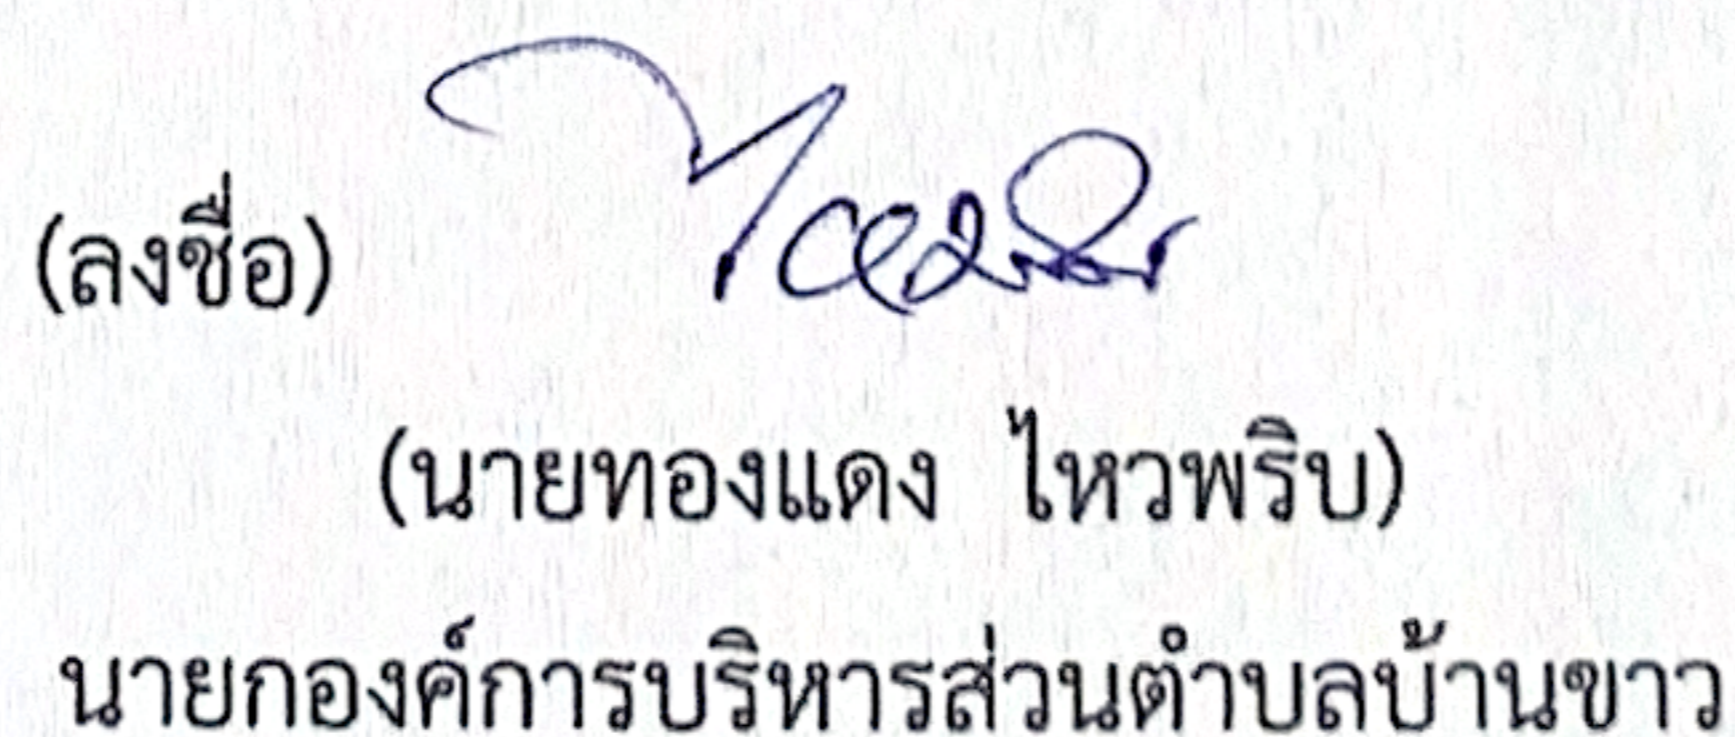 (ลงชื่อ)
(นายทองแดง ไหวพริบ)
นายกองค์การบริหารส่วนตำบลบ้านขาว